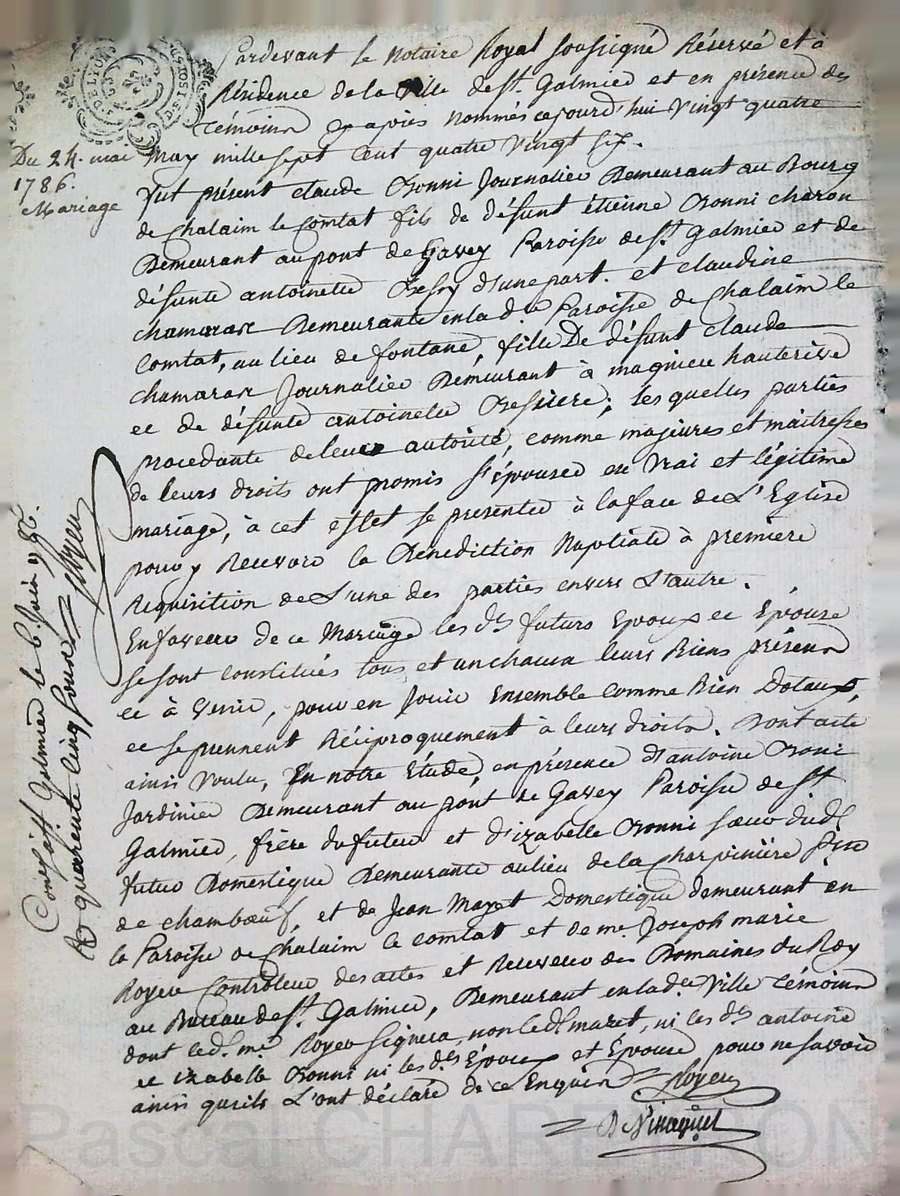 Pardevant le Notaire Royal soussigné Réservé et à
Résidence de la Ville de St. Galmier et en présence des
témoins cy après nommés cejourd'hui vingt quatre
Du 24. mai
1786.
Mariage
May mille sept cent quatre vingt six.
fut présent claude Journalier Demeurant au Bourg
de Chalaim le Comtat fils de défunt étienne charon
Demeurant au pont de Gavey Paroisse de St. Galmier et de
défunte antoinette d'une part. et claudine
chamarax Demeurante en la de. Paroisse de Chalaim le
Comtat, au lieu de fontane, fille De défunt claude
chamarax Journalier Demeurant à magniere hauterive
et de défunte antoinette ; les quelles parties
procedante de leur autorité, comme majeures et maitresses
de leurs droits ont promis s'épouser en vrai et légitime
mariage, à cet effet se presenter à la face de L'Eglise
pour y Recevoir la Benediction Nuptiale à première
Requisition de L'une des parties envers L'autre.
En faveur de ce Mariage les ds. futurs Epoux et Epouse
se sont constitués tous et un chacun leurs Biens présens
et à venir, pour en Jouir Ensemble comme Bien Dotaux,
et se prennent Réciproquement à leurs droits. Dont acte
ainsi voulu, En notre Etude, en présence d'antoine
Jardinier Demeurant au pont de Gavey Paroisse de St.
Galmier, frère du futur et d'izabelle soeur du d.
futur Domestique Demeurante au lieu de la Charpinière
de chambœuf, et de Jean Mayet Domestique demeurant en
la Paroisse de Chalaim le comtat et de me. Joseph marie
Royer Contrôleur des actes et Receveur des Domaines du Roy
au Bureau de St. Galmier, Demeurant en la de. Ville témoins
dont le d. me. Royer signera, non le d. maret, ni les ds. antoine
et izabelle ni les ds. Epoux et Epouse pour ne savoir
ainsi qu'ils L'ont déclaré de ce Enquis Royer
Conté à St. Galmier le 6 Juin 1786.
R quarante cinq sous Royer
Pascal CHAREYRON